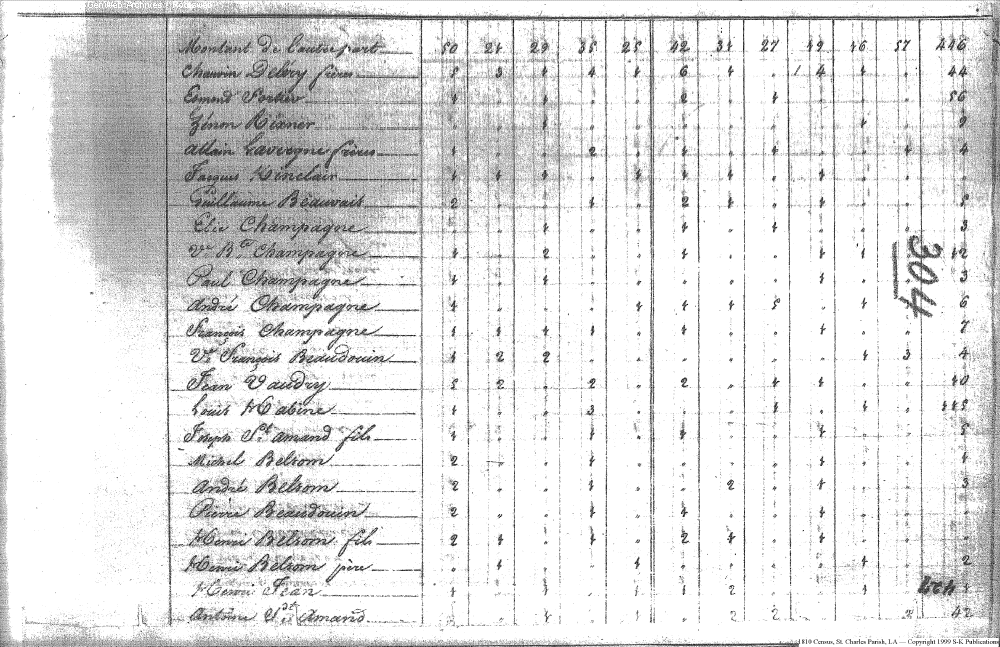 Montant de l'autre part 50 21 29 35 25 42 31 27 49 46 57 446
Chauvin Deléry frères 5 3 1 4 1 6 1 . 4 1 . 44
Edmond Fortier 1 . 1 . . 2 . 1 . . . 56
Zénon . . 1 . . . . . . 1 . 9
Allain Lavergne frères 1 . . 2 . 1 . 1 . . 1 4
Jacques 1 1 1 . 1 1 1 . 1 . . .
Guillaume Beauvait 2 . . 1 . 2 1 . 1 . . 5
Elie Champagne . . 1 . . 1 . 1 . . . 3
Ve. Bte. Champagne 1 . 2 . . 1 . . 1 1 . 12
Paul Champagne 1 . 1 . . . . . 1 . . 3
André Champagne 4 . . . 1 1 1 5 . 1 . 6
François Champagne 1 1 1 1 . 1 . . 1 . . 7
Ve. François Beaudouin 1 2 2 . . . . . . 1 3 4
Jean Vaudry 5 2 . 2 . 2 . 1 1 . . 10
Louis 1 . . 3 . . . 1 . 1 . 115
Joseph St. amand fils 1 . . 1 . 1 . . 1 . . 5
Michel Belsom 2 . . 1 . . . . 1 . . 1
André Belsom 2 . . 1 . . 2 . 1 . . 3
Pierre Beaudouin 2 . . 1 . 1 . . 1 . . .
Henri Belsom fils 2 1 . 1 . 2 1 . 1 . . .
Henri Belsom père . 1 . . 1 . . . . 1 . 2
Henri Jean 1 . 1 . 1 1 2 . 1 . . 1
Antoine St. Amand . . 1 . 1 1 2 2 . . 2 42
304
1810 Census, St. Charles Parish, LA — Copyright 1999 S-K Publications